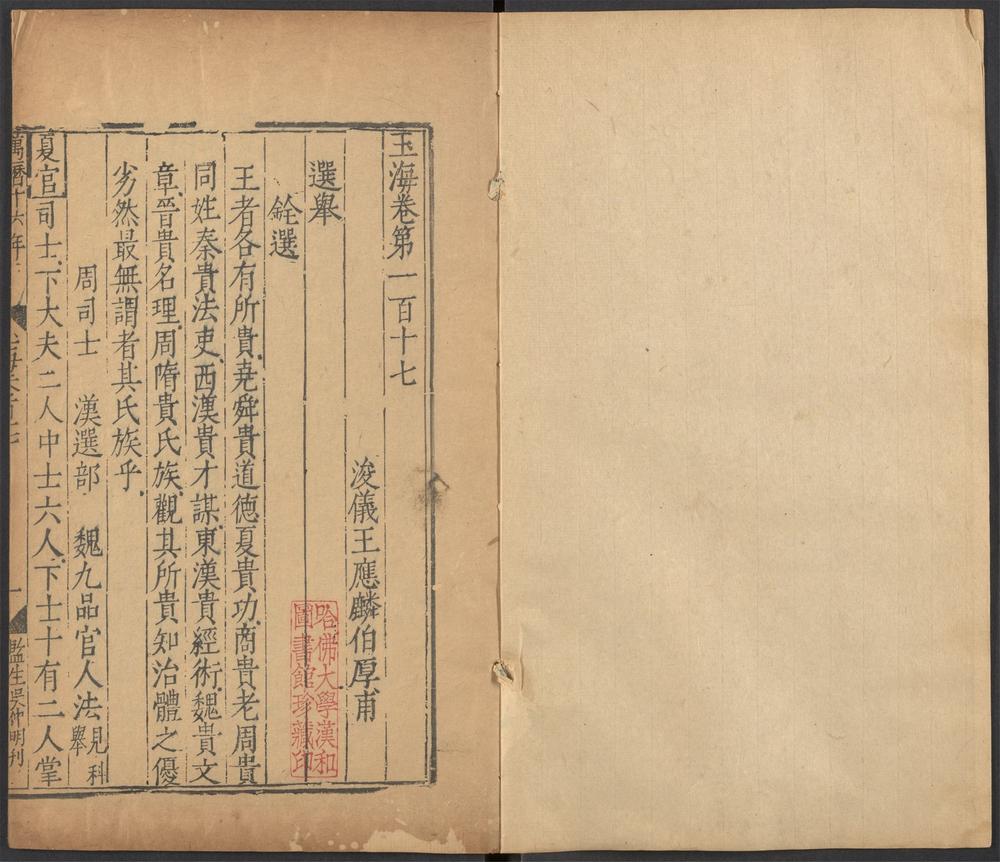 玉海卷第一百十七
浚儀王應麟伯厚甫
選舉
銓選
王者各有所貴堯舜貴道德夏貴功商貴老周貴
同姓秦貴法吏西漢貴才謀東漢貴經術魏貴文
章晉貴名理周隋貴氏族觀其所貴知治體之優
劣然最無謂者其氏族乎
周司士 漢選部 魏九品官人法見科舉
夏官司士下大夫二人中士六人下士十有二人掌
萬曆十六年
一
監生吳仲明刊
哈佛大學漢和
圖書館珍藏印